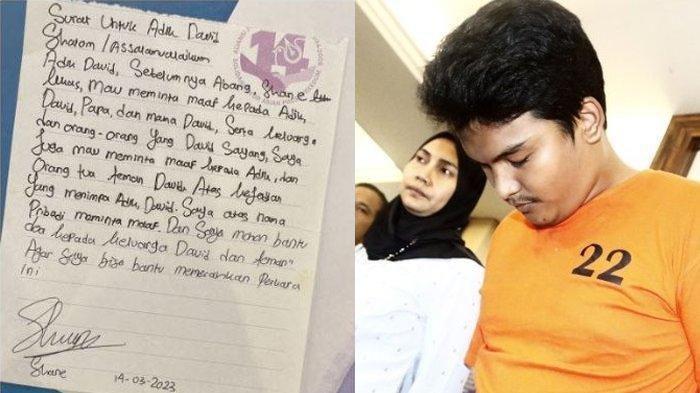 Surat Untuk Adik David
Shalom / Assalamualaikum
Adik David, Sebelumnya Abang, Shane
lukas, Mau meminta maaf kepada Adik,
David, Papa, dan mama David, Serta keluarga
dan orang-orang Yang David Sayang, Saya
Juga mau meminta maaf kepada Adik, dan
Orang tua teman David Atas kejadian
Yang menimpa Adik David. Saya atas nama
Pribadi meminta maaf. Dan Saya mohon bantu
doa kepada keluarga David dan teman"
Agar Saya bisa bantu Perkara
Ini
Shane
14-03-2023
22